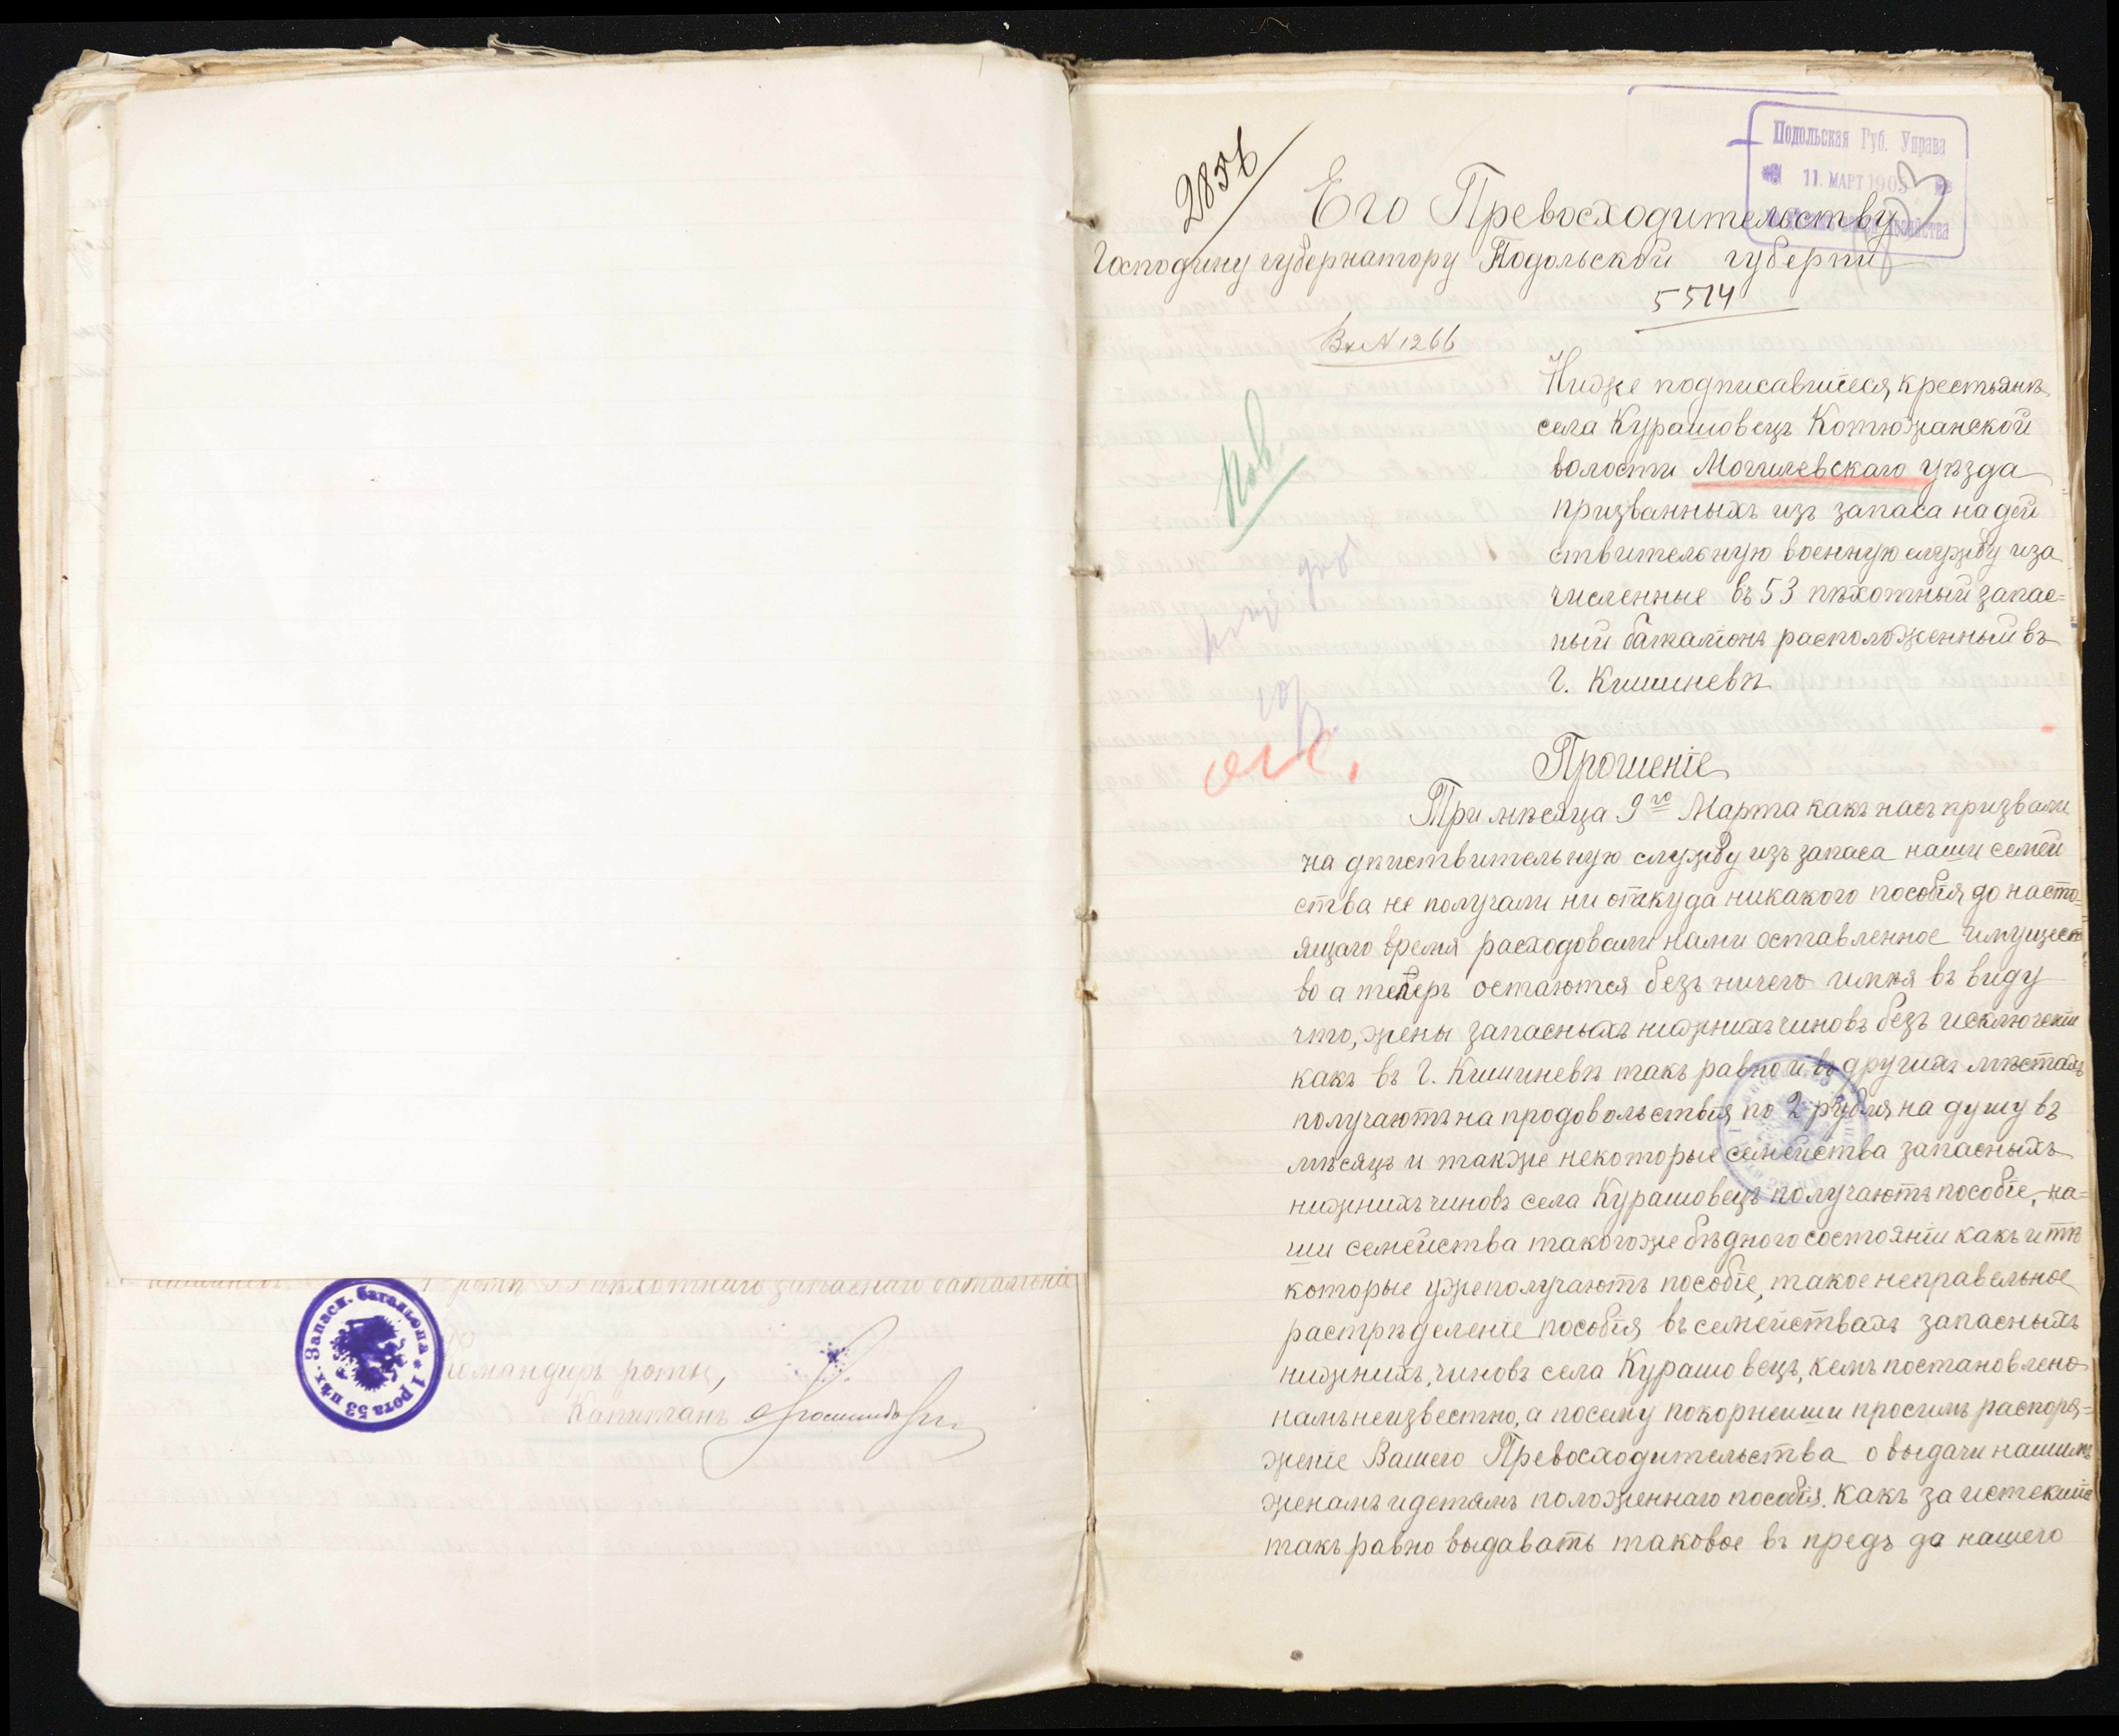 1 ротѣ 53 пѣхотнаго запаснаго баталіона
1 рота 53 пѣх. Запасн. баталіона
Командиръ роты,
Капитанъ
2856
Подольская Губ. Управа
11. МАРТ 1905
Его Превосходительству
Господину губернатору Подольской губерніи
5514
Вх N 1266
Ниже подписавшіеся, крестьянъ
села Курашовецъ Котюжанской
волости Могилевскаго уѣзда
призванныхъ изъ запаса на дѣй
ствительную военную службу и за
численные въ 53 пѣхотный запас=
ный баталіонъ расположенный въ
г. Кишиневѣ
Прошеніе
Три мѣсяца 9го Марта какъ насъ призвали
на дѣйствительную службу изъ запаса наши семей
ства не получали ни откуда никакого пособія до насто=
ящаго время расходовали нами оставленное имущест
во а теперь остаются безъ ничего имѣя въ виду
что, жены запасныхъ нижнихъ чиновъ безъ исключенія
какъ въ г. Кишиневѣ такъ равно и въ другихъ мѣстахъ
получаютъ на продовольствія по 2 рубля на душу въ
мѣсяцъ и также некоторые семейства запасныхъ
нижнихъ чиновъ села Курашовецъ получаютъ пособіе, на=
ши семейства такого же бѣдного состоянія какъ и тѣ
которые уже получаютъ пособіе, такое неправельное
растрѣделеніе пособія въ семействахъ запасныхъ
нижнихъ, чиновъ села Курашовецъ, кемъ постановлено
намъ неизвестно, а посему покорнейши просимъ распоря=
женіе Вашего Превосходительства о выдачи нашимъ
женамъ и детямъ положеннаго пособія. какъ за истекшіе
такъ равно выдавать таковое въ предъ до нашего